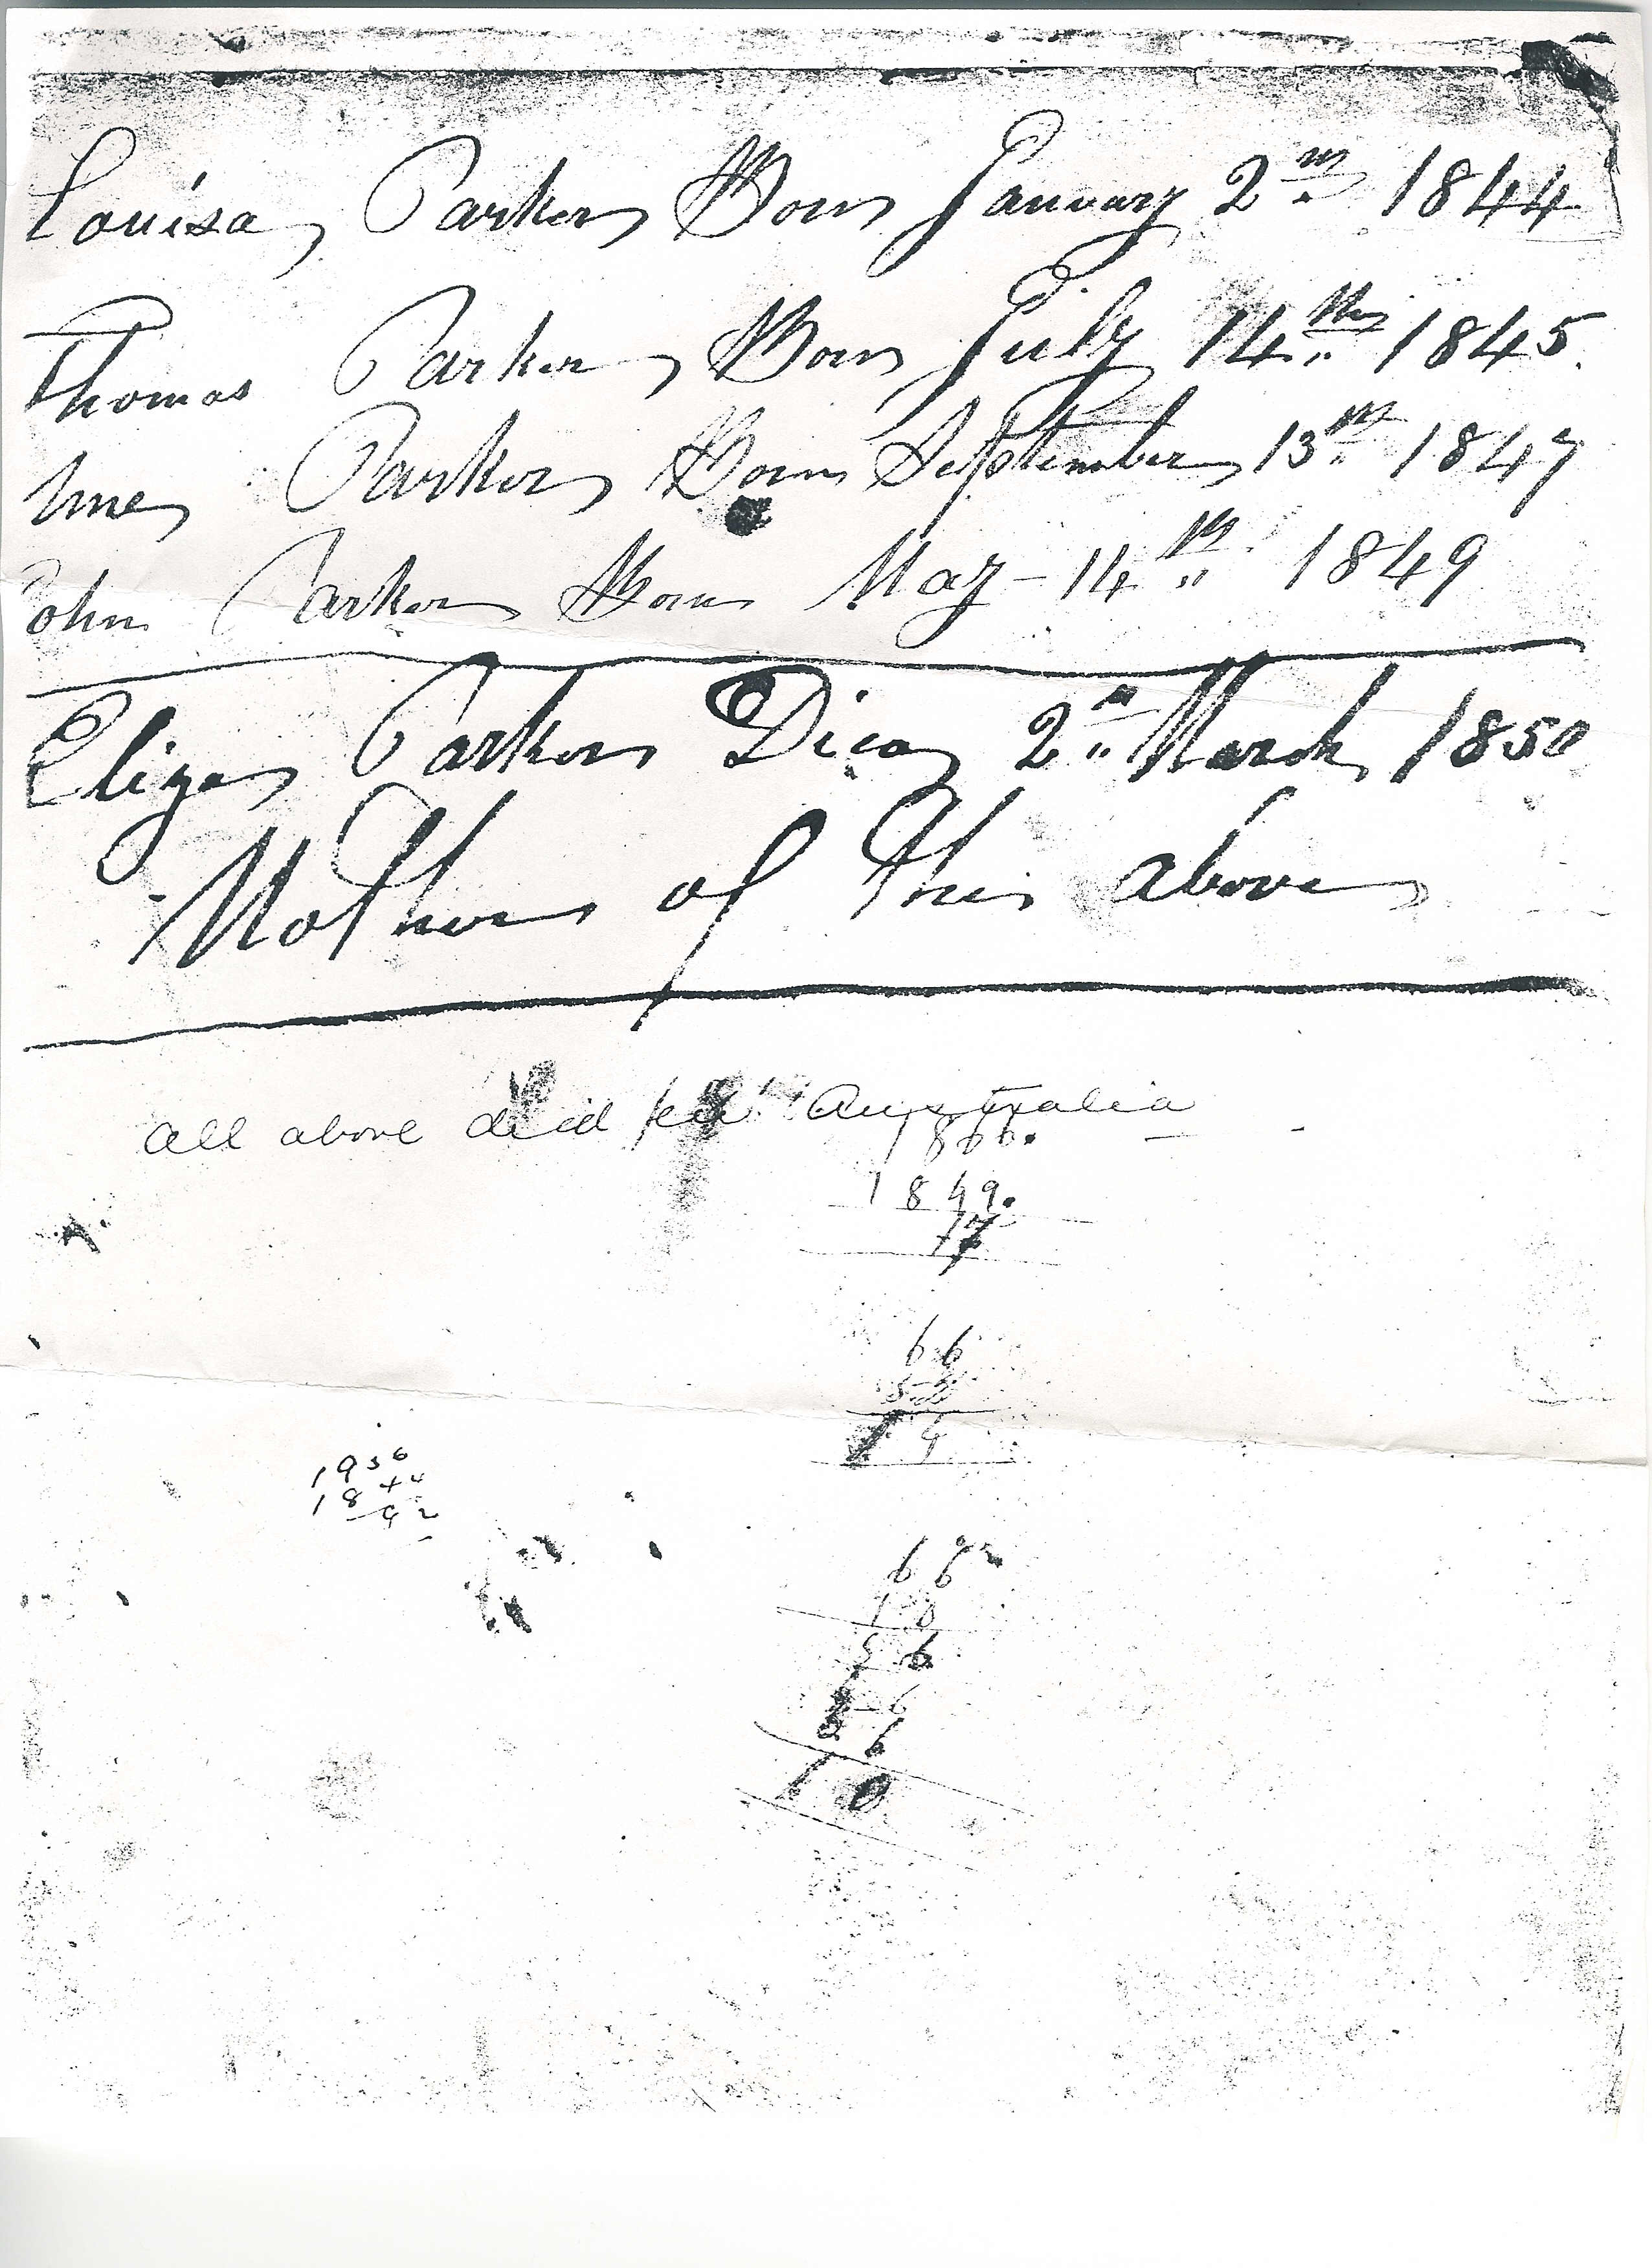 Louisa Parker Born January 2nd 1844
Thomas Parker Born July 14th 1845.
Parker Born September 13th 1847
John Parker Born May - 14th 1849
Eliza Parker Died 2nd March 1850
Mother of the above
all above died in Australia
1866.
1849.
17
66
1936
1844
92
66
10
56
10